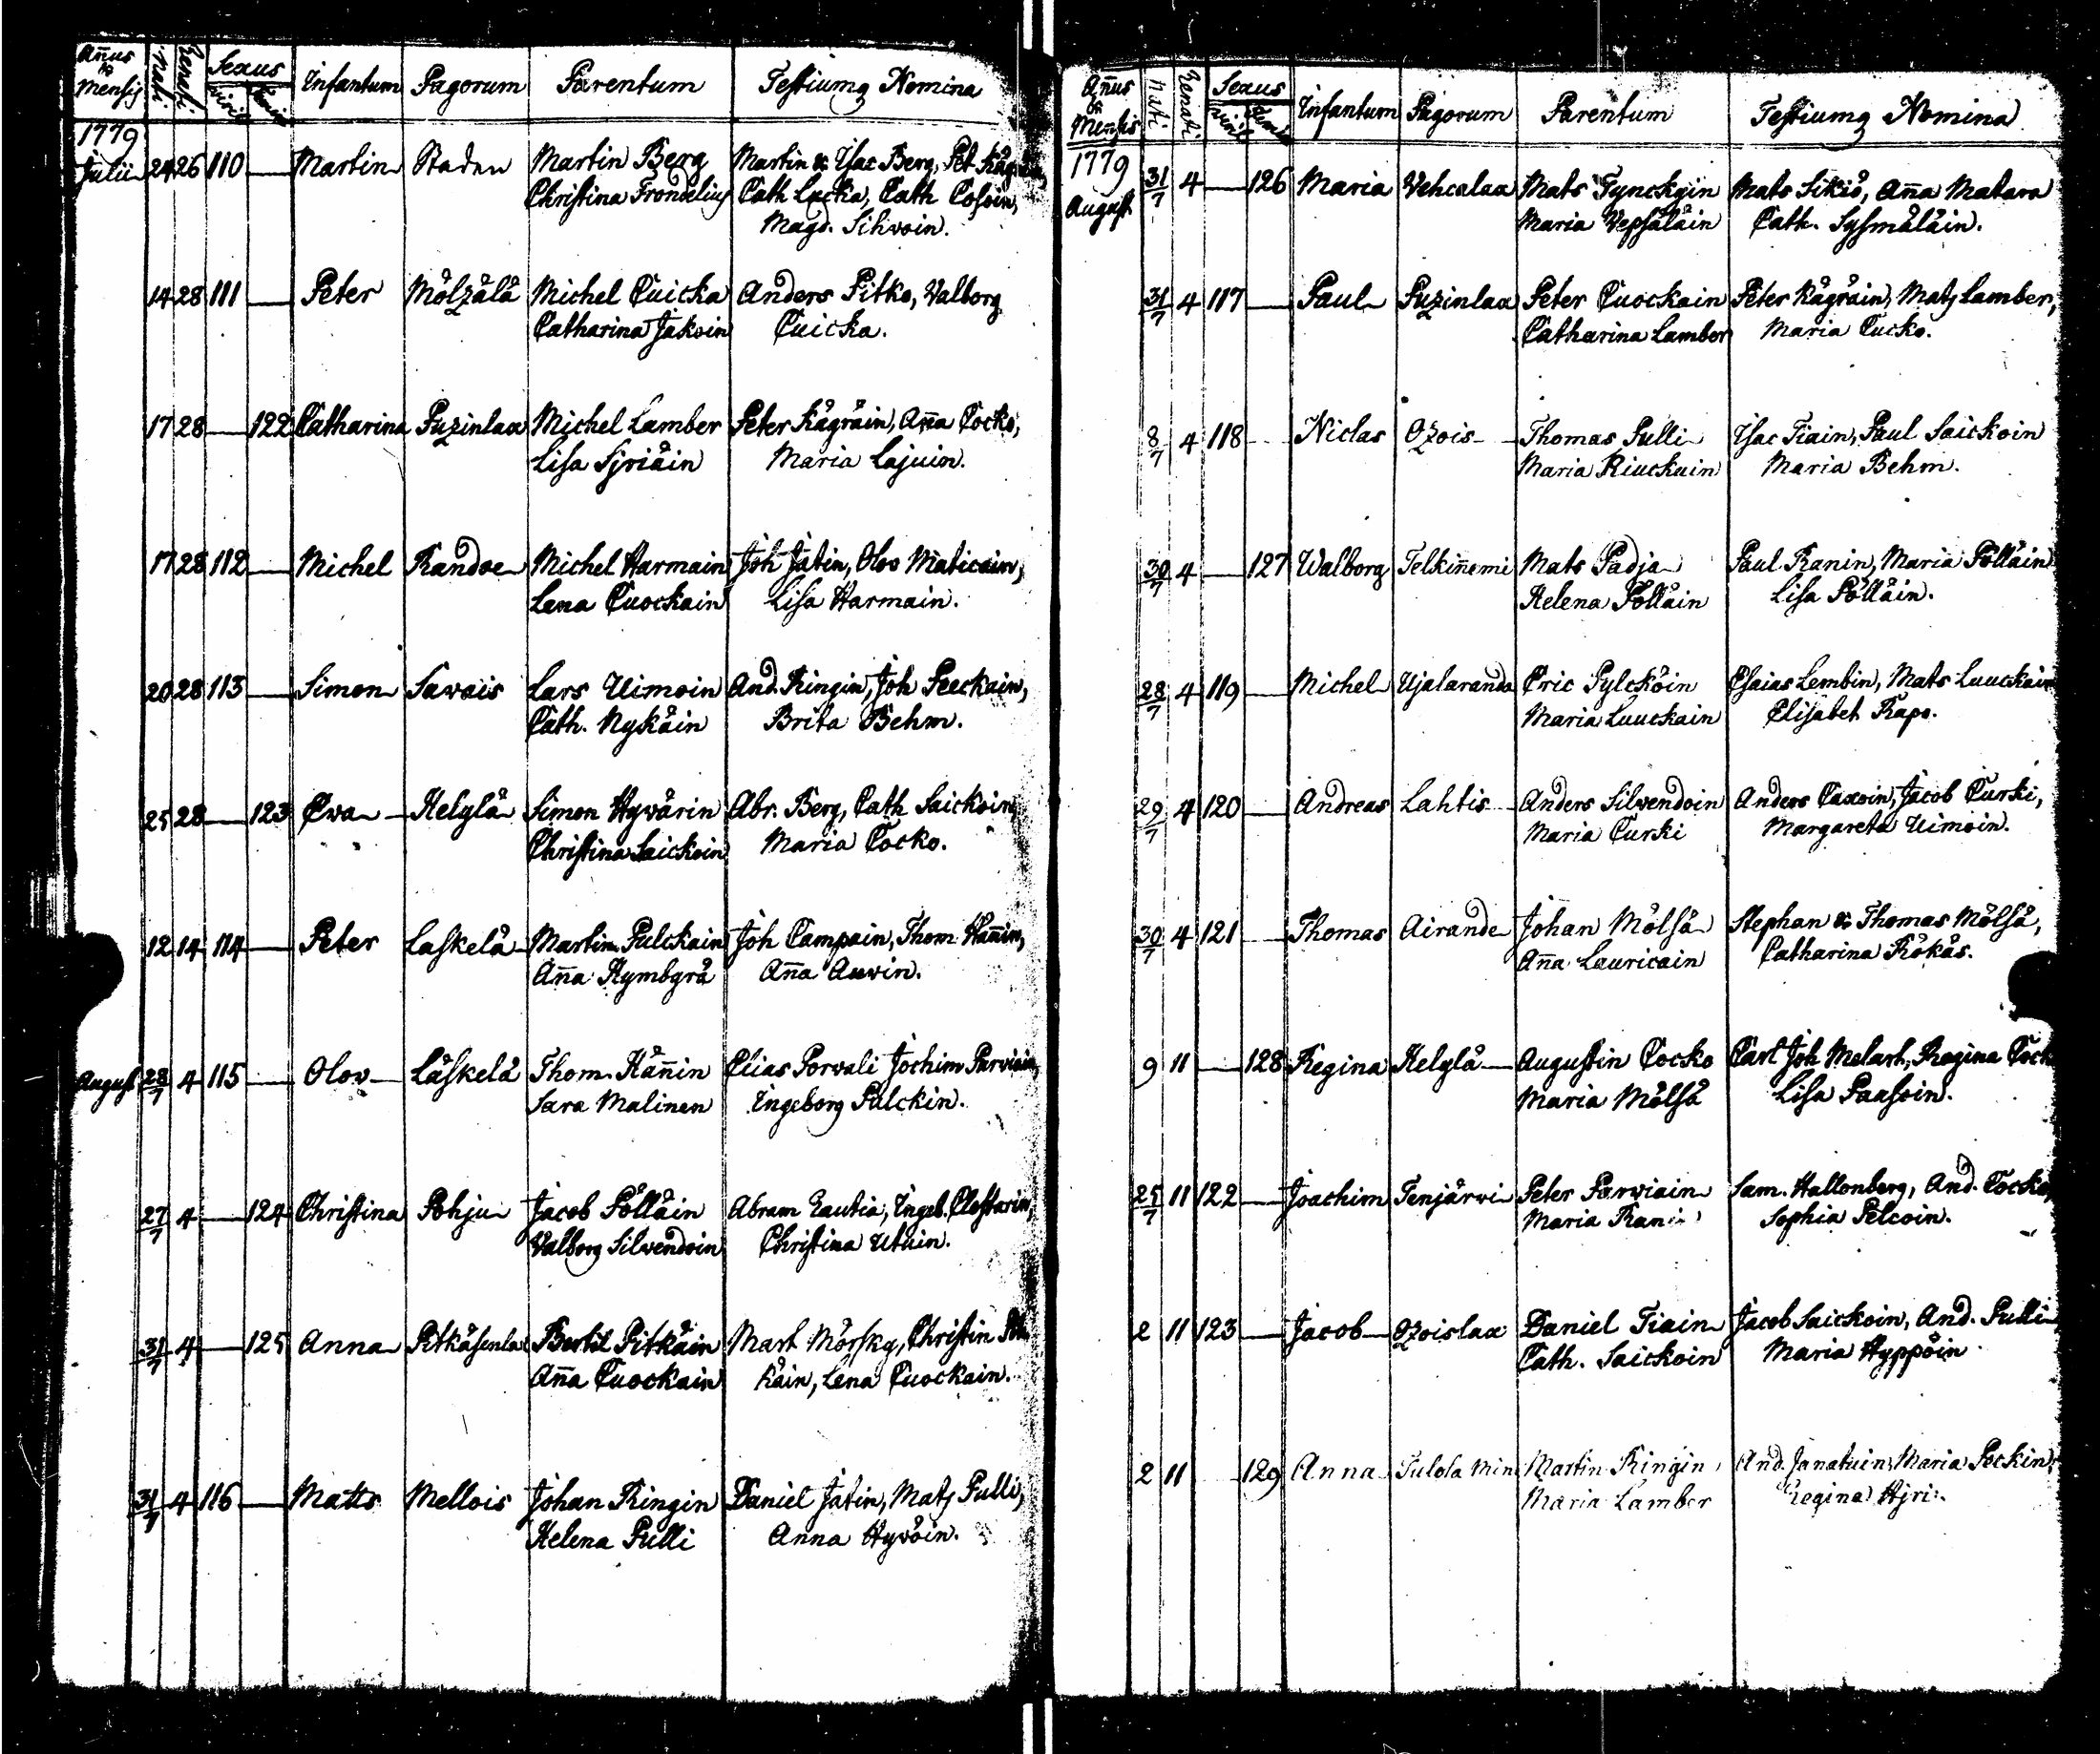 Años & Mensis Nati Renati Sexus Infantum Pagorum Parentum Testiumq Nomina
viril
1779
Julii 24 26 110 Martin Staden Martin Berg Martin & Isac Berg, Pet
Christina Frondelius Cath Lucka, Cath Cosoin,
Magd. Sihvoin.
14 28 111 Peter Mölzälä Michel Cuicka Anders Pitko, Valborg
Catharina Jakoin Cuicka.
17 28 122 Catharina Puzinlax Michel Lamber Peter Kägräin, Aña Cocko,
Lisa Syriäin Maria Lajuin.
17 28 112 Michel Randoe Michel Harmain Joh Jätin, Olov Maticain,
Lena Cuockain Lisa Harmain.
20 28 113 Simon Savais Lars Uimoin And. Ringin, Joh Peeckain,
Cath. Nykäin Brita Behm.
25 28 123 Ewa Helylä Simon Hyvärin Abr. Berg, Cath Saickoin
Christina Saickoin Maria Cocko.
12 14 114 Peter Laskelä Martin Pulckain Joh Campain, Thom Häñin,
Aña Kymbyrä Aña Auvin.
August 28/7 4 115 Olov Läskelä Thom. Häñin Elias Porvali Jochim Parviain,
Sara Malinen Ingeborg Pulckin.
27/7 4 124 Christina Pohju Jacob Pölläin Abram Rautia, Ingeb. Clostarin,
Valborg Silvendoin Christina Utuin.
31/7 4 125 Anna Pitkäsenlax Bertil Pitkäin Mart Mörsky, Christin Pit
Aña Cuockain käin, Lena Cuockain.
31/7 4 116 Matts Mellois Johan Ringin Daniel Jätin, Mats Pulli,
Helena Pulli Anna Hyvöin.
Años & Mensis Nati Renati Sexus Infantum Pagorum Parentum Testiumq Nomina
viril
1779
August 31/7 4 126 Maria Vehcalax Mats Tynckyin Mats Sikiö, Aña Matara
Maria Vepsäläin Cath. Sysmäläin.
31/7 4 117 Paul Puzinlax Peter Cuockain Peter Kägräin, Mats Lamber,
Catharina Lamber Maria Cucko.
8/7 4 118 Niclas Ozois Thomas Pulli Isac Tiain, Paul Saickoin
Maria Riuckuin Maria Behm.
30/7 4 127 Walborg Telkiñemi Mats Padja Paul Ranin, Maria Pölläin
Helena Pölläin Lisa Pölläin.
28/7 4 119 Michel Ujalaranda Eric Pylcköin Esaias Lembin, Mats Luuckain
Maria Luuckain Elisabet Rapo.
29/7 4 120 Andreas Lahtis Anders Silvendoin Anders Caxoin, Jacob Curki,
Maria Curki Margareta Uimoin.
30/7 4 121 Thomas Airande Johan Mölsä Stephan & Thomas Mölsä,
Aña Lauricain Catharina Rökäs.
9 11 128 Regina Helylä Augustin Cocko Carl Joh Melart, Regina Cock
Maria Mölsä Lisa Paasoin.
25/7 11 122 Joachim Tenjärvi Peter Parviain Sam. Hallonberg, And. Cocko,
Maria Rani Sophia Pelcoin.
2 11 123 Jacob Ozoislax Daniel Tiain Jacob Saickoin, And. Pulli
Cath. Saickoin Maria Hyppöin.
2 11 129 Anna Tulola Min Martin Ringin And. Janatuin, Maria Peckin,
Maria Lamber Regina